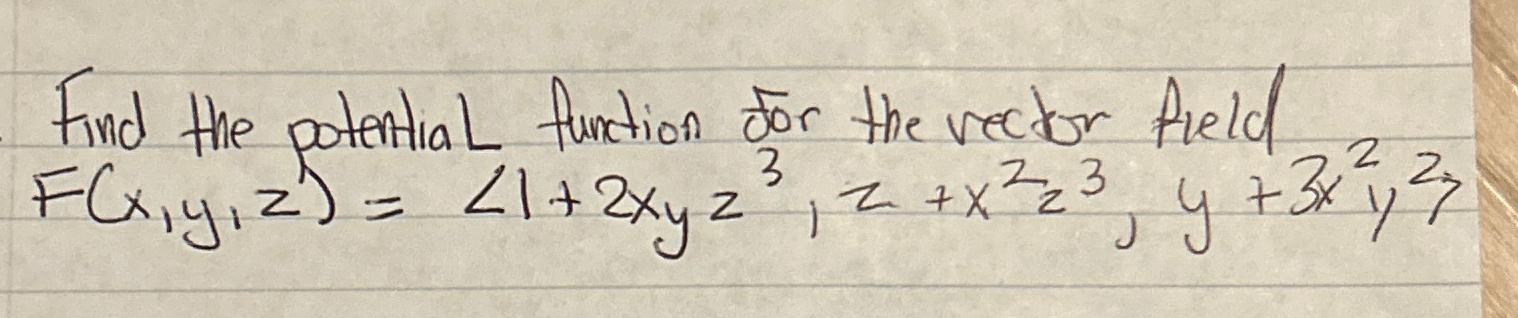 Find the potential function for the vector field
F(x,y,z) = <1+2xyz³, z+x²z³, y+3x²y²>